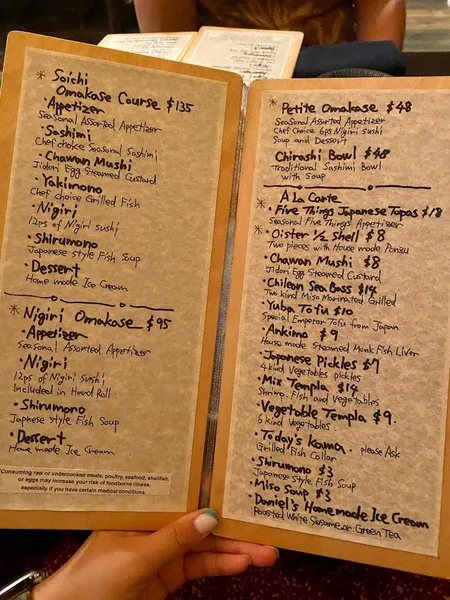 * Soichi
Omakase Course $135
• Appetizer
Seasonal Assorted Appetizer
• Sashimi
Chef choice Seasonal Sashimi
• Chawan Mushi
Jidori Egg Steamed Custard
• Yakimono
Chef choice Grilled Fish
• Nigiri
12ps of Nigiri sushi
• Shirumono
Japanese style Fish Soup
• Dessert
Home made Ice Cream
* Nigiri Omakase $95
• Appetizer
Seasonal Assorted Appetizer
• Nigiri
12ps of Nigiri Sushi
Included in Hand Roll
• Shirumono
Japnese style Fish Soup
• Dessert
Home made Ice Cream
*Consuming raw or undercooked meats, poultry, seafood, shellfish,
or eggs may increase your risk of foodborne illness,
especially if you have certain medical conditions.
* Petite Omakase $48
Seasonal Assorted Appetizer
Chef Choice 6ps Nigiri sushi
Soup and Dessert
Chirashi Bowl $48
Traditional Sashimi Bowl
with Soup
A La Carte
* • Five Things Japanese Tapas $18
Seasonal Five Things Appetizer
* • Oister 1/2 Shell $8
Two pieces with House made Ponzu
• Chawan Mushi $8
Jidori Egg Steamed Custard
• Chilean Sea Bass $14
Two kind Miso Marinated Grilled
• Yuba Tofu $10
Special Emperor Tofu from Japan
• Ankimo $9
House made Steamed Monk Fish Liver
• Japanese Pickles $7
4 kind Vegetables pickles
• Mix Templa $14
Shrimp, Fish and Vegetables
• Vegetable Templa $9.
Kind Vegetables
• Today's Kama. please Ask
Grilled Fish Collar
• Shirumono $3
Japanese Style Fish Soup
• Miso Soup $3
• Daniel's Home made Ice Cream
Roasted White Sesame or Green Tea